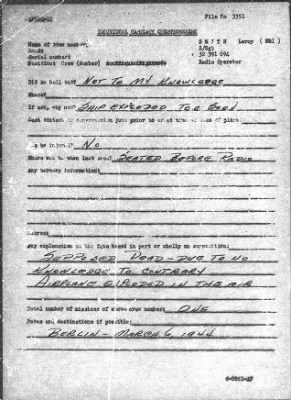 File No 3351
INDIVIDUAL CASUALTY QUESTIONNAIRE
Name of crew member: SMITH Leroy (NMI)
Rank: S/Sgt
Serial number: 32 391 694
Position: Crew (Bomber) Radio Operator
Did he bail out? NOT TO MY KNOWLEDGE
Where?
If not, why not? SHIP EXPLODED TOO SOON
Last contact or conversation just prior to or at time of loss of plane:
Was he injured? NO
Where was he when last seen? SEATED BEFORE RADIO
Any hearsay information:
Source:
Any explanation of his fate based in part or wholly on supposition:
SUPPOSED DEAD - DUE TO NO
KNOWLEDGE TO CONTRARY
AIRPLANE EXPLODED IN THE AIR
Total number of missions of above crew member: ONE
Dates and destinations if possible:
BERLIN - MARCH 6, 1944